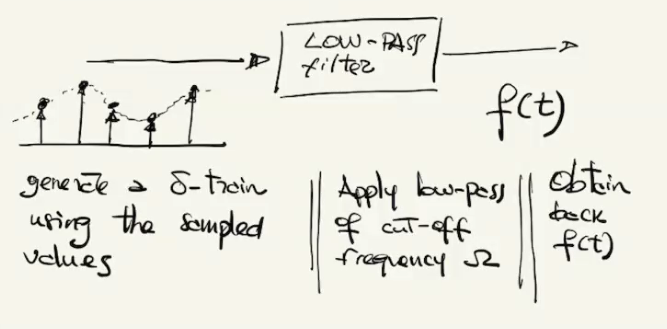 LOW-PASS
filter
f(t)
generate a δ-train
using the sampled
values
Apply low-pass
of cut-off
frequency Ω
Obtain
back
f(t)